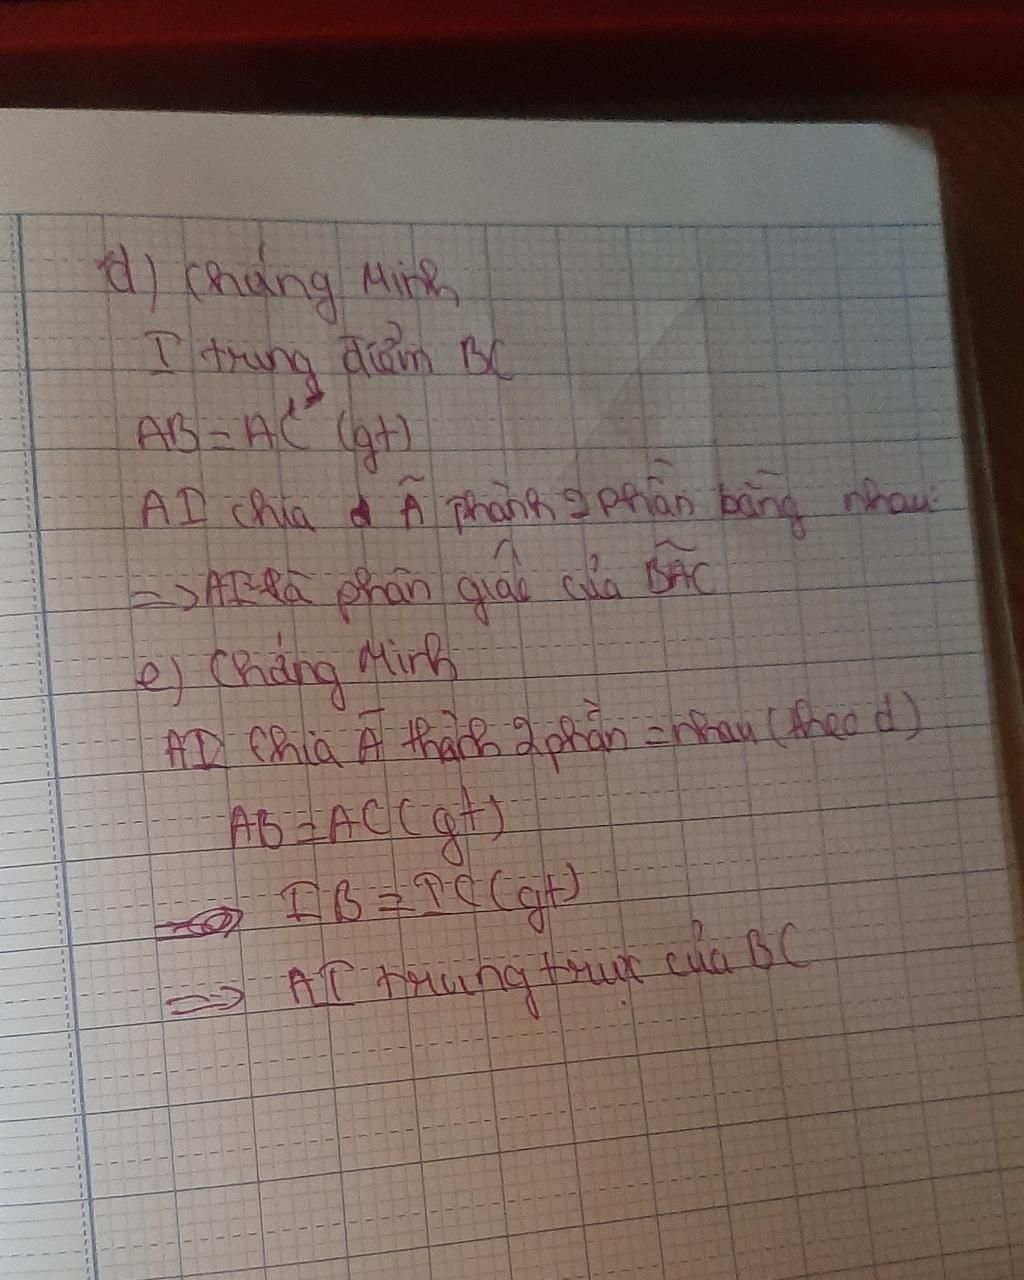 d) Chứng Minh
I trung điểm BC
AB = AC (gt)
AI chia Â thành 2 phần bằng nhau
=> AI là phân giác của BAC
e) Chứng Minh
AI chia Â thành 2 phần = nhau (theo d)
AB = AC (gt)
IB = IC (gt)
=> AI trung trực của BC